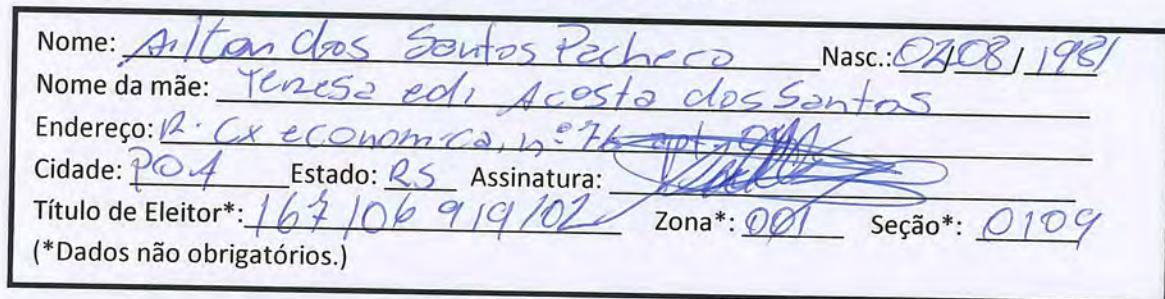 Nome: Ailton dos Santos Pacheco Nasc.: 02/08/1981
Nome da mãe: Tereza edi Acosta dos Santos
Endereço: R. Cx economica, nº 76
Cidade: POA Estado: RS Assinatura:
Título de Eleitor*: 167106919/02 Zona*: 001 Seção*: 0109
(*Dados não obrigatórios.)